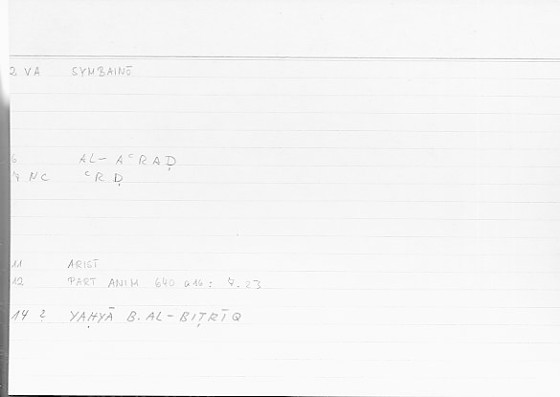 2 VA SYMBAINŌ
6 AL-AʿRĀḌ
7 NC ʿRḌ
11 ARIST
12 PART ANIM 640 a16: 7.23
14 2 YAḤYĀ B. AL-BIṬRĪQ